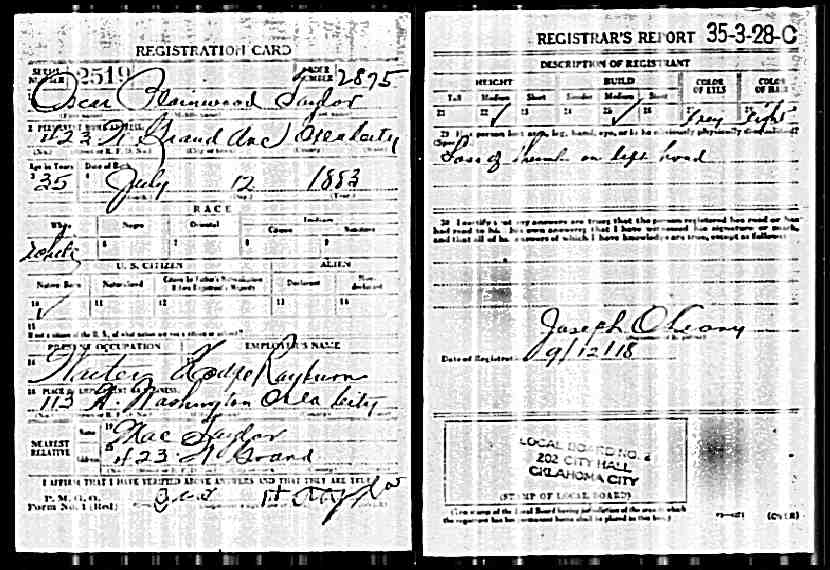 REGISTRATION CARD
SERIAL NUMBER 2519 ORDER NUMBER 2875
Oscar Taylor
423 N. Grand Ave
Age in Years Date of Birth
35 July 12 1883
RACE
White Negro Oriental Indian
Citizen
white
U. S. CITIZEN ALIEN
Native Born Naturalized Citizen by Father's Naturalization Before Registrant's Majority Declarant Non-declarant
10 11 12 13 14
15
If not a citizen of the U. S., of what nation are you a citizen or subject?
PRESENT OCCUPATION EMPLOYER'S NAME
Rayburn
PLACE OF EMPLOYMENT OR BUSINESS
113 N. Washington City
NEAREST RELATIVE
Name Mae Taylor
Address 423 N Grand
I AFFIRM THAT I HAVE VERIFIED ABOVE ANSWERS AND THAT THEY ARE TRUE
P. M. G. O.
Form No. 1 (Red)
REGISTRAR'S REPORT 35-3-28-C
DESCRIPTION OF REGISTRANT
HEIGHT BUILD COLOR OF EYES COLOR OF HAIR
Tall Medium Short Slender Medium Stout
21 22 23 24 25 26 27 28
Grey Light
29 Has person lost arm, leg, hand, eye, or is he obviously physically disqualified?
(Specify)
Loss of thumb on left hand
30 I certify that my answers are true; that the person registered has read or has
had read to him his own answers; that I have witnessed his signature or mark,
and that all of his answers of which I have knowledge are true, except as follows:
Joseph O'Leary
Date of Registration 9/12/18
LOCAL BOARD NO. 2
202 CITY HALL
OKLAHOMA CITY
(STAMP OF LOCAL BOARD)
(The stamp of the Local Board having jurisdiction of the area in which
the registrant has his permanent home shall be placed in this box.)
(OVER)